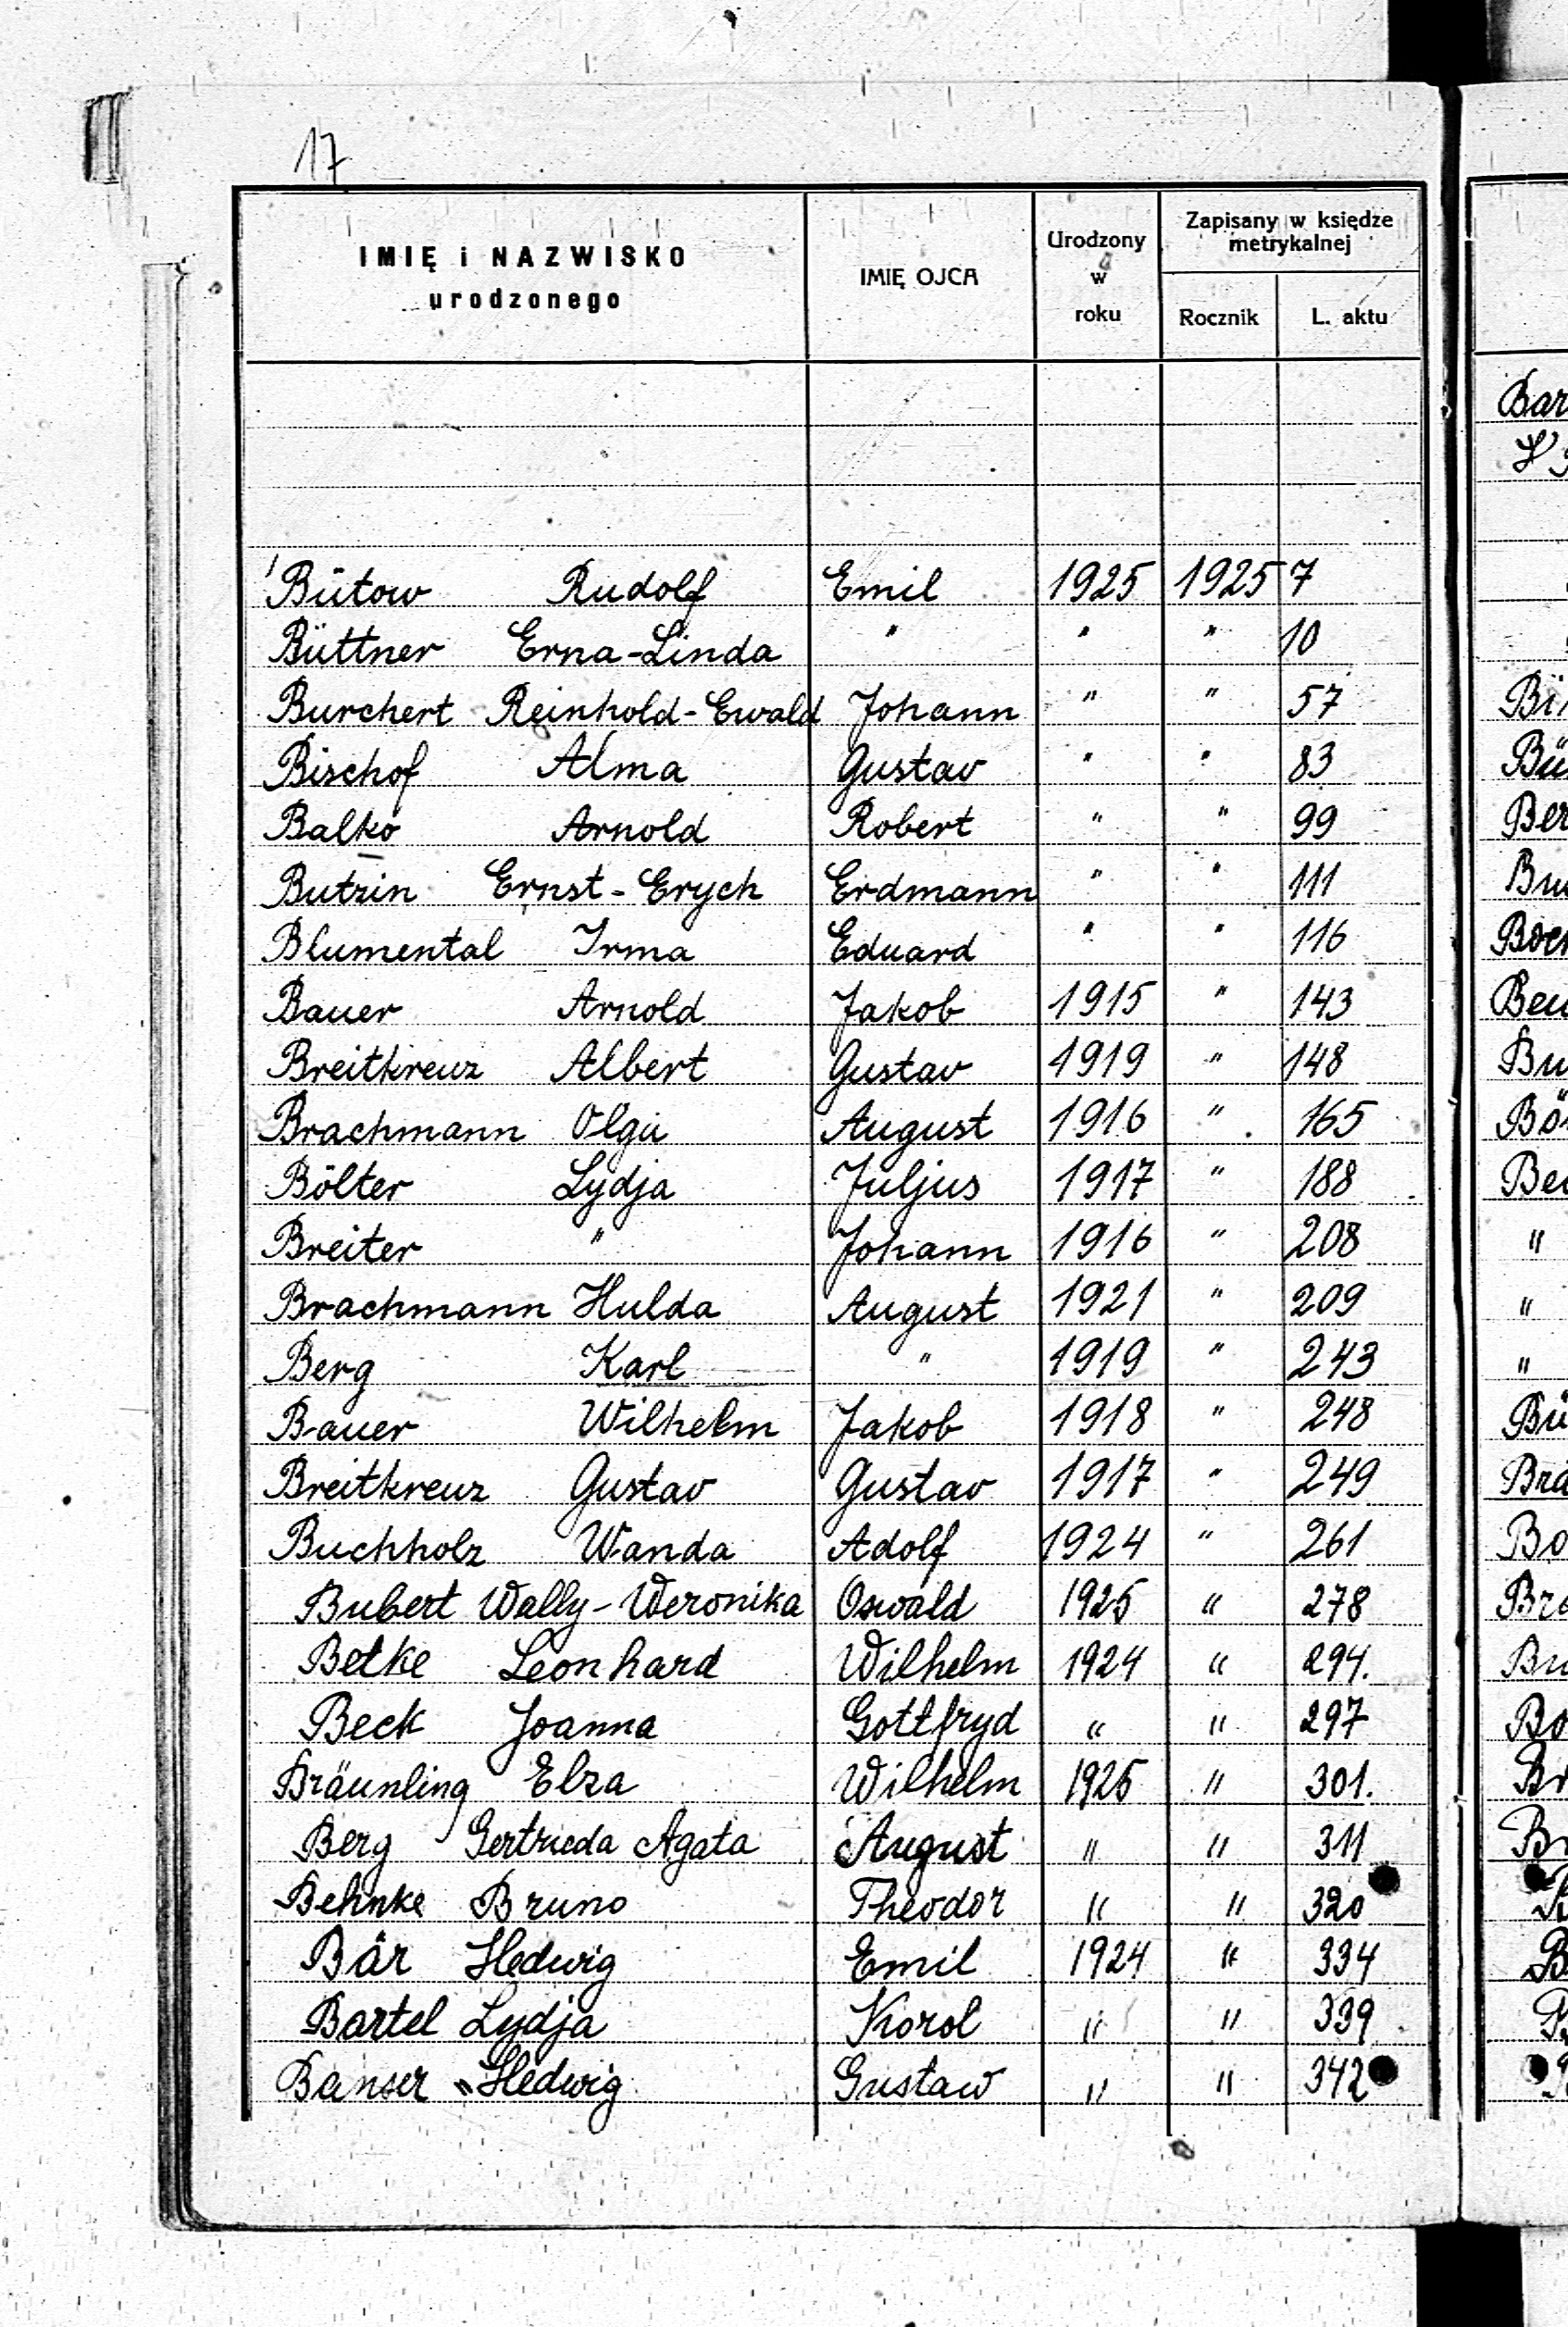 17
IMIĘ i NAZWISKO urodzonego | IMIĘ OJCA | Urodzony w roku | Zapisany w księdze metrykalnej
Rocznik | L. aktu
Bütow Rudolf Emil 1925 1925 7
Büttner Erna-Linda " " " 10
Burchert Reinhold-Ewald Johann " " 57
Bischof Alma Gustav " " 83
Balko Arnold Robert " " 99
Butzin Ernst-Erych Erdmann " " 111
Blumental Irma Eduard " " 116
Bauer Arnold Jakob 1915 " 143
Breitkreuz Albert Gustav 1919 " 148
Brachmann Olga August 1916 " 165
Bölter Lydja Juljus 1917 " 188
Breiter " Johann 1916 " 208
Brachmann Hulda August 1921 " 209
Berg Karl " 1919 " 243
Bauer Wilhelm Jakob 1918 " 248
Breitkreuz Gustav Gustav 1917 " 249
Buchholz Wanda Adolf 1924 " 261
Bubert Wally-Weronika Oswald 1925 " 278
Betke Leonhard Wilhelm 1924 " 294.
Beck Joanna Gottfryd " " 297
Bräunling Elza Wilhelm 1925 " 301.
Berg Gertrieda Agata August " " 311
Behnke Bruno Theodor " " 320
Bär Hedwig Emil 1924 " 334
Bartel Lydja Korol " " 339
Banser Hedwig Gustaw " " 342